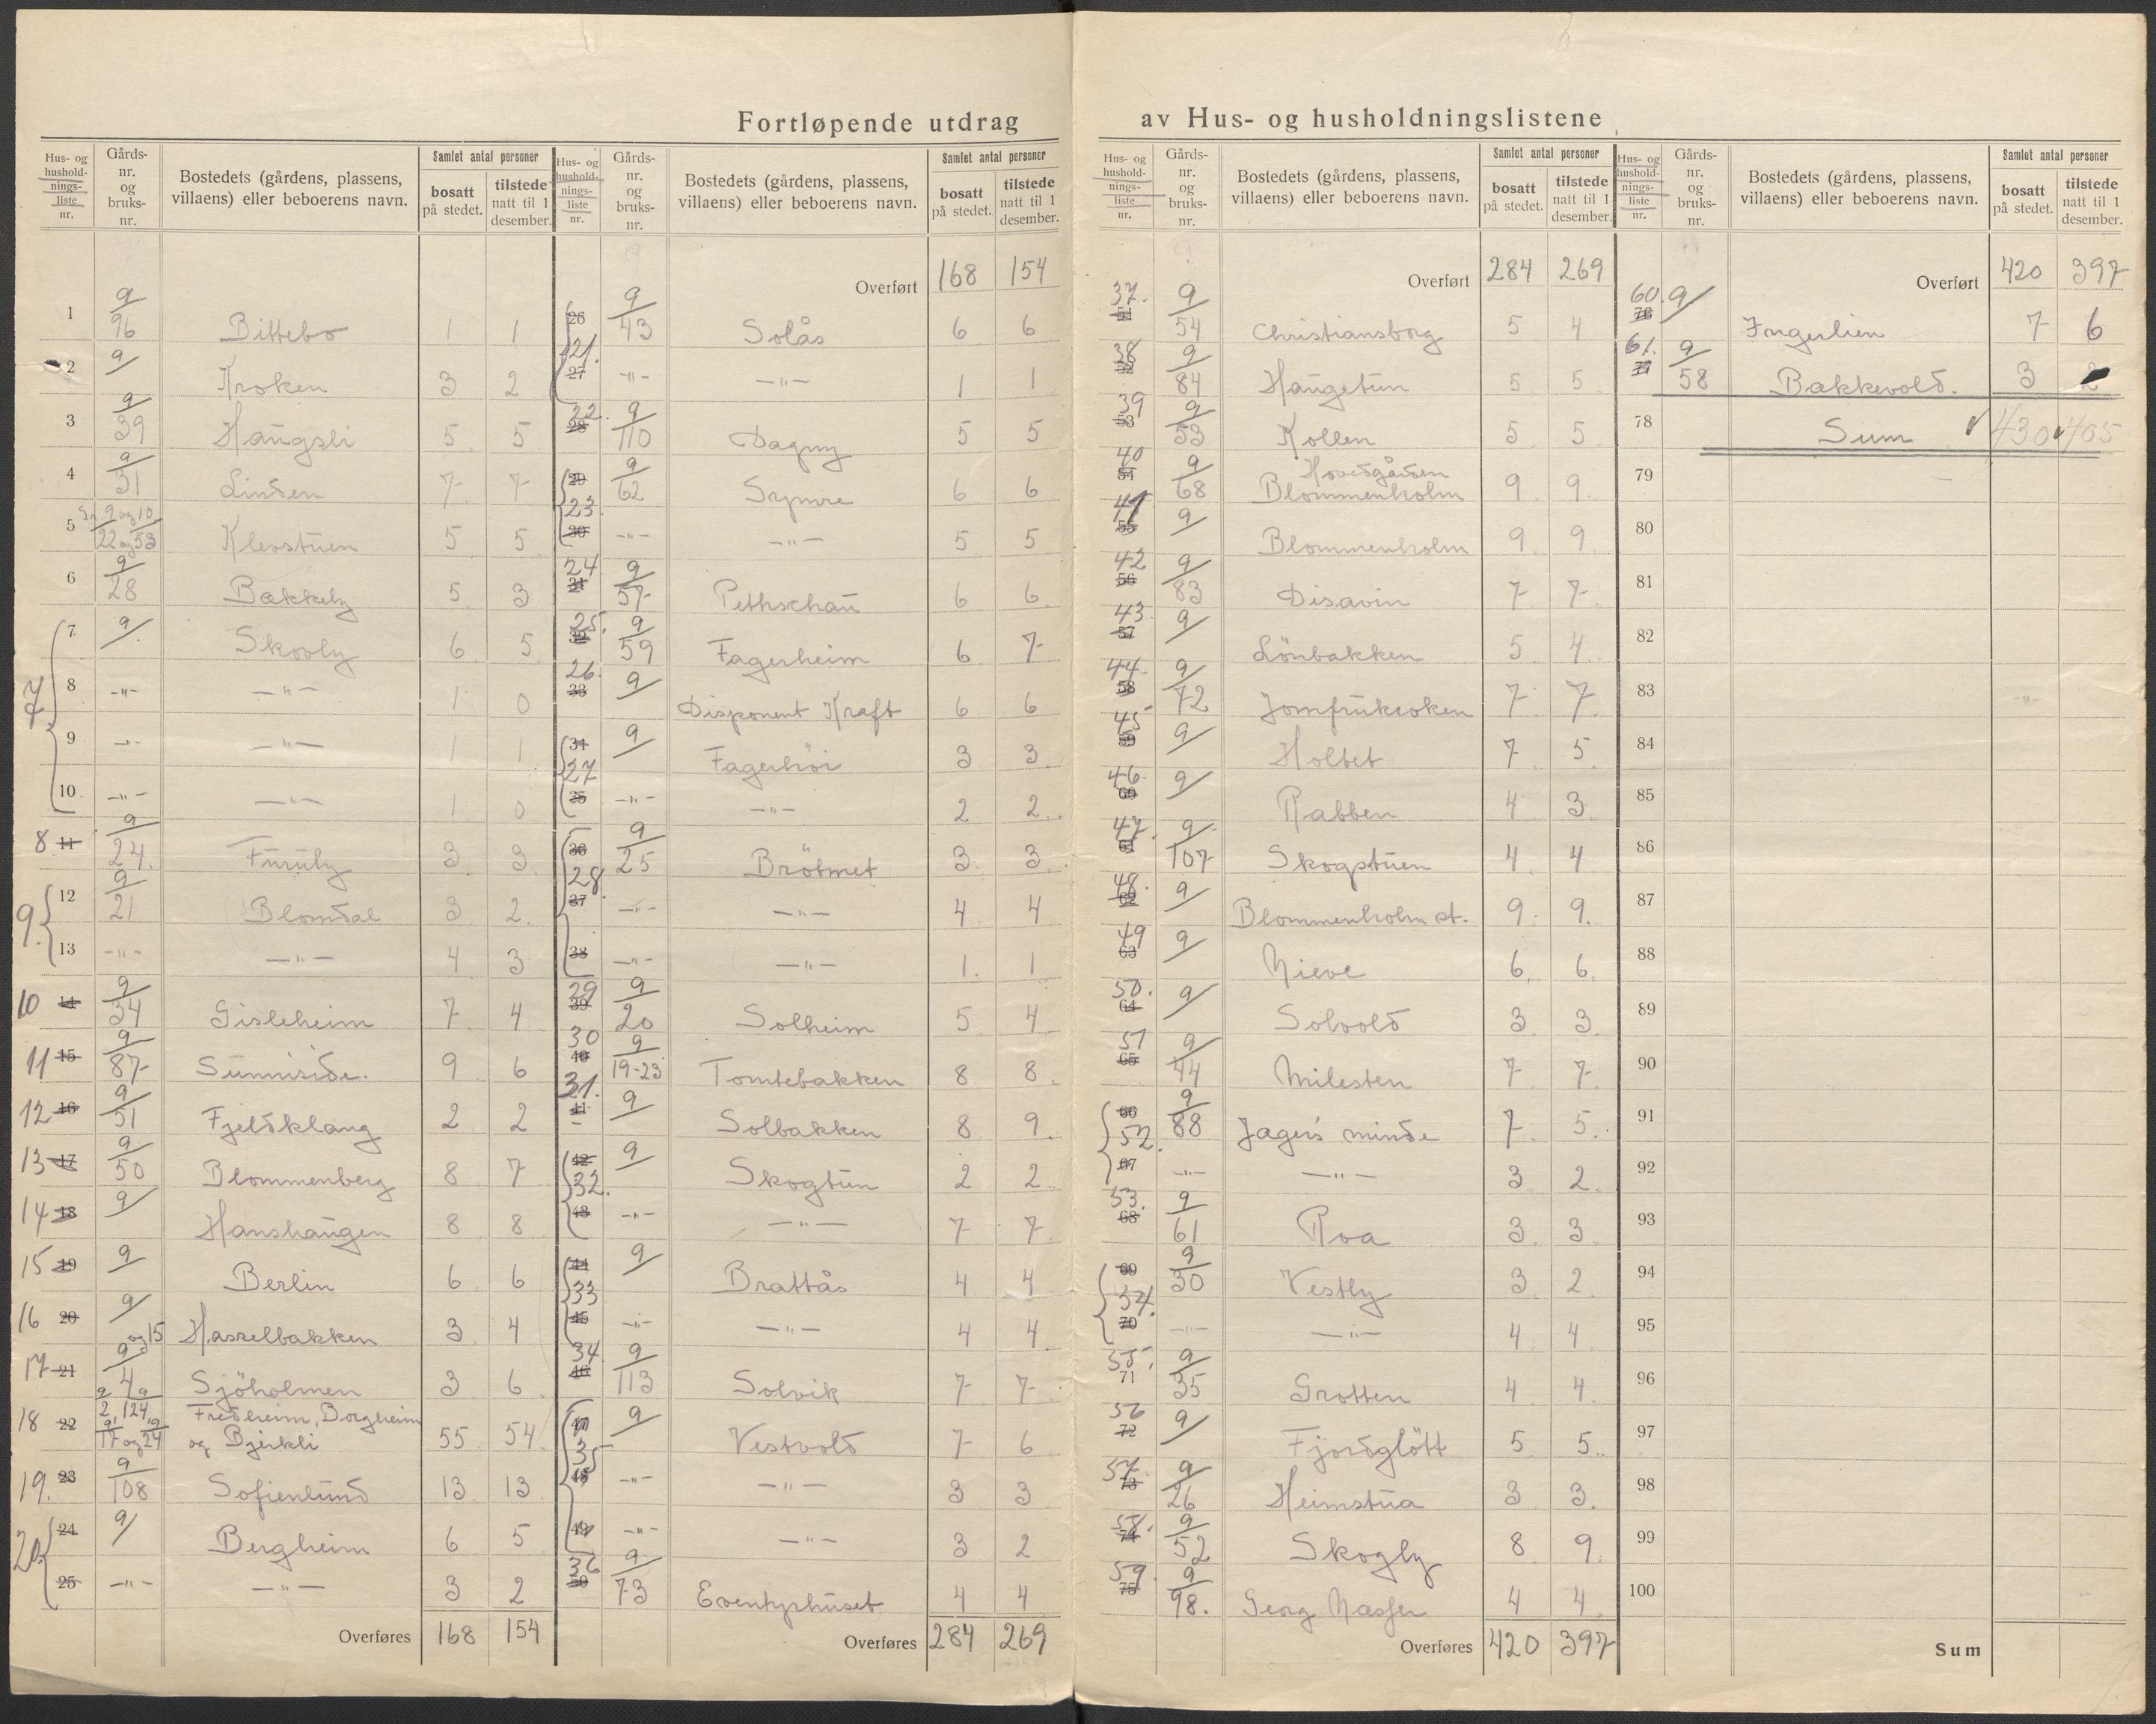 Fortløpende utdrag av Hus- og husholdningslistene
Hus- og hushold-nings-liste nr. Gårds-nr. og bruks-nr. Bostedets (gårdens, plassens, villaens) eller beboerens navn. Samlet antal personer bosatt på stedet. tilstede natt til 1 desember.
1 9/96 Bittebo 1 1
2 9/ Kroken 3 2
3 9/39 Haugsli 5 5
4 9/31 Linden 7 7
5 Gr. 9 og 10 / 22 og 53 Klevstuen 5 5
6 9/28 Bakkely 5 3
7 7 9/ Skovly 6 5
8 -"- -"- 1 0
9 -"- -"- 1 1
10 -"- -"- 1 0
8 11 9/24 Furuly 3 3
9. 12 9/21 Blomdal 3 2
13 -"- -"- 4 3
10 14 9/34 Gisleheim 7 4
11 15 9/87 Sunniside. 9 6
12 16 9/51 Fjeldklang 2 2
13 17 9/50 Blommenberg 8 7
14 18 9/ Hanshaugen 8 8
15 19 9/ Berlin 6 6
16 20 9/ Hasselbakken 3 4
17 21 9/4 og 15 Sjöholmen 3 6
18 22 9/2, 9/124, 9/17 og 9/24 Fredheim, Borgheim og Bjerkli 55 54
19. 23 9/108 Sofienlund 13 13
20 24 9/ Bergheim 6 5
25 -"- -"- 3 2
Overføres 168 154
Hus- og hushold-nings-liste nr. Gårds-nr. og bruks-nr. Bostedets (gårdens, plassens, villaens) eller beboerens navn. Samlet antal personer bosatt på stedet. tilstede natt til 1 desember.
Overført 168 154
26 9/43 Solås 6 6
21. 27 -"- -"- 1 1
22. 28 9/110 Dagny 5 5
29 9/62 6 6
23. 30 -"- -"- 5 5
24 31 9/57 Pethschau 6 6
25. 32 9/59 Fagerheim 6 7
26. 33 9/ Disponent Kraft 6 6
34 9/ Fagerhöi 3 3
27 35 -"- -"- 2 2
36 9/25 Brötmet 3 3
28. 37 -"- -"- 4 4
38 -"- -"- 1 1
29 39 9/20 Solheim 5 4
30 40 9/19-23 Tomtebakken 8 8
31. 41 9/ Solbakken 8 9
42 9/ Skogtun 2 2
32. 43 -"- -"- 7 7
44 9/ Brattås 4 4
33 45 -"- -"- 4 4
34 46 9/113 Solvik 7 7
47 9/ Vestvold 7 6
35 48 -"- -"- 3 3
49 -"- -"- 3 2
36 50 9/73 Eventyrhuset 4 4
Overføres 284 269
Hus- og hushold-nings-liste nr. Gårds-nr. og bruks-nr. Bostedets (gårdens, plassens, villaens) eller beboerens navn. Samlet antal personer bosatt på stedet. tilstede natt til 1 desember.
Overført 284 269
37. 51 9/54 Christiansborg 5 4
38 52 9/84 Haugetun 5 5
39 53 9/53 Kollen 5 5
40 54 9/68 Hovedgården Blommenholm 9 9
41 55 9/ Blommenholm 9 9
42 56 9/83 Disavin 7 7
43 57 9/ Lönbakken 5 4
44. 58 9/72 Jomfrukroken 7 7
45 59 9/ Holtet 7 5
46. 60 9/ Rabben 4 3
47. 61 9/107 Skogstuen 4 4
48. 62 9/ Blommenholm st. 9 9.
49 63 9/ Mieve 6 6
50. 64 9/ Solvold 3 3
51 65 9/44 Milesten 7 7
66 9/88 Jager's minde 7 5
52. 67 -"- -"- 3 2
53. 68 9/61 Roa 3 3
69 9/30 Vestly 3 2
54. 70 -"- -"- 4 4
55. 71 9/35 Grotten 4 4
56 72 9/ Fjordglött 5 5
57. 73 9/26 Heimstua 3 3
58. 74 9/52 Skogly 8 9
59. 75 9/98. Georg 4 4
Overføres 420 397
Hus- og hushold-nings-liste nr. Gårds-nr. og bruks-nr. Bostedets (gårdens, plassens, villaens) eller beboerens navn. Samlet antal personer bosatt på stedet. tilstede natt til 1 desember.
Overført 420 397
60. 76 9/ Ingerlien 7 6
61. 77 9/58 Bakkevold. 3 2
78 Sum 430 405
79
80
81
82
83
84
85
86
87
88
89
90
91
92
93
94
95
96
97
98
99
100
Sum